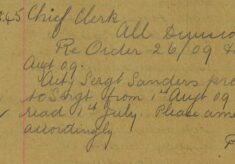 .45 Chief Clerk
All Divisio
Re Order 26/09 &
Augt 09.
Act, Sergt Sanders pro
to Sergt from 1st Augt 09
read 1st July. Please ame
accordingly